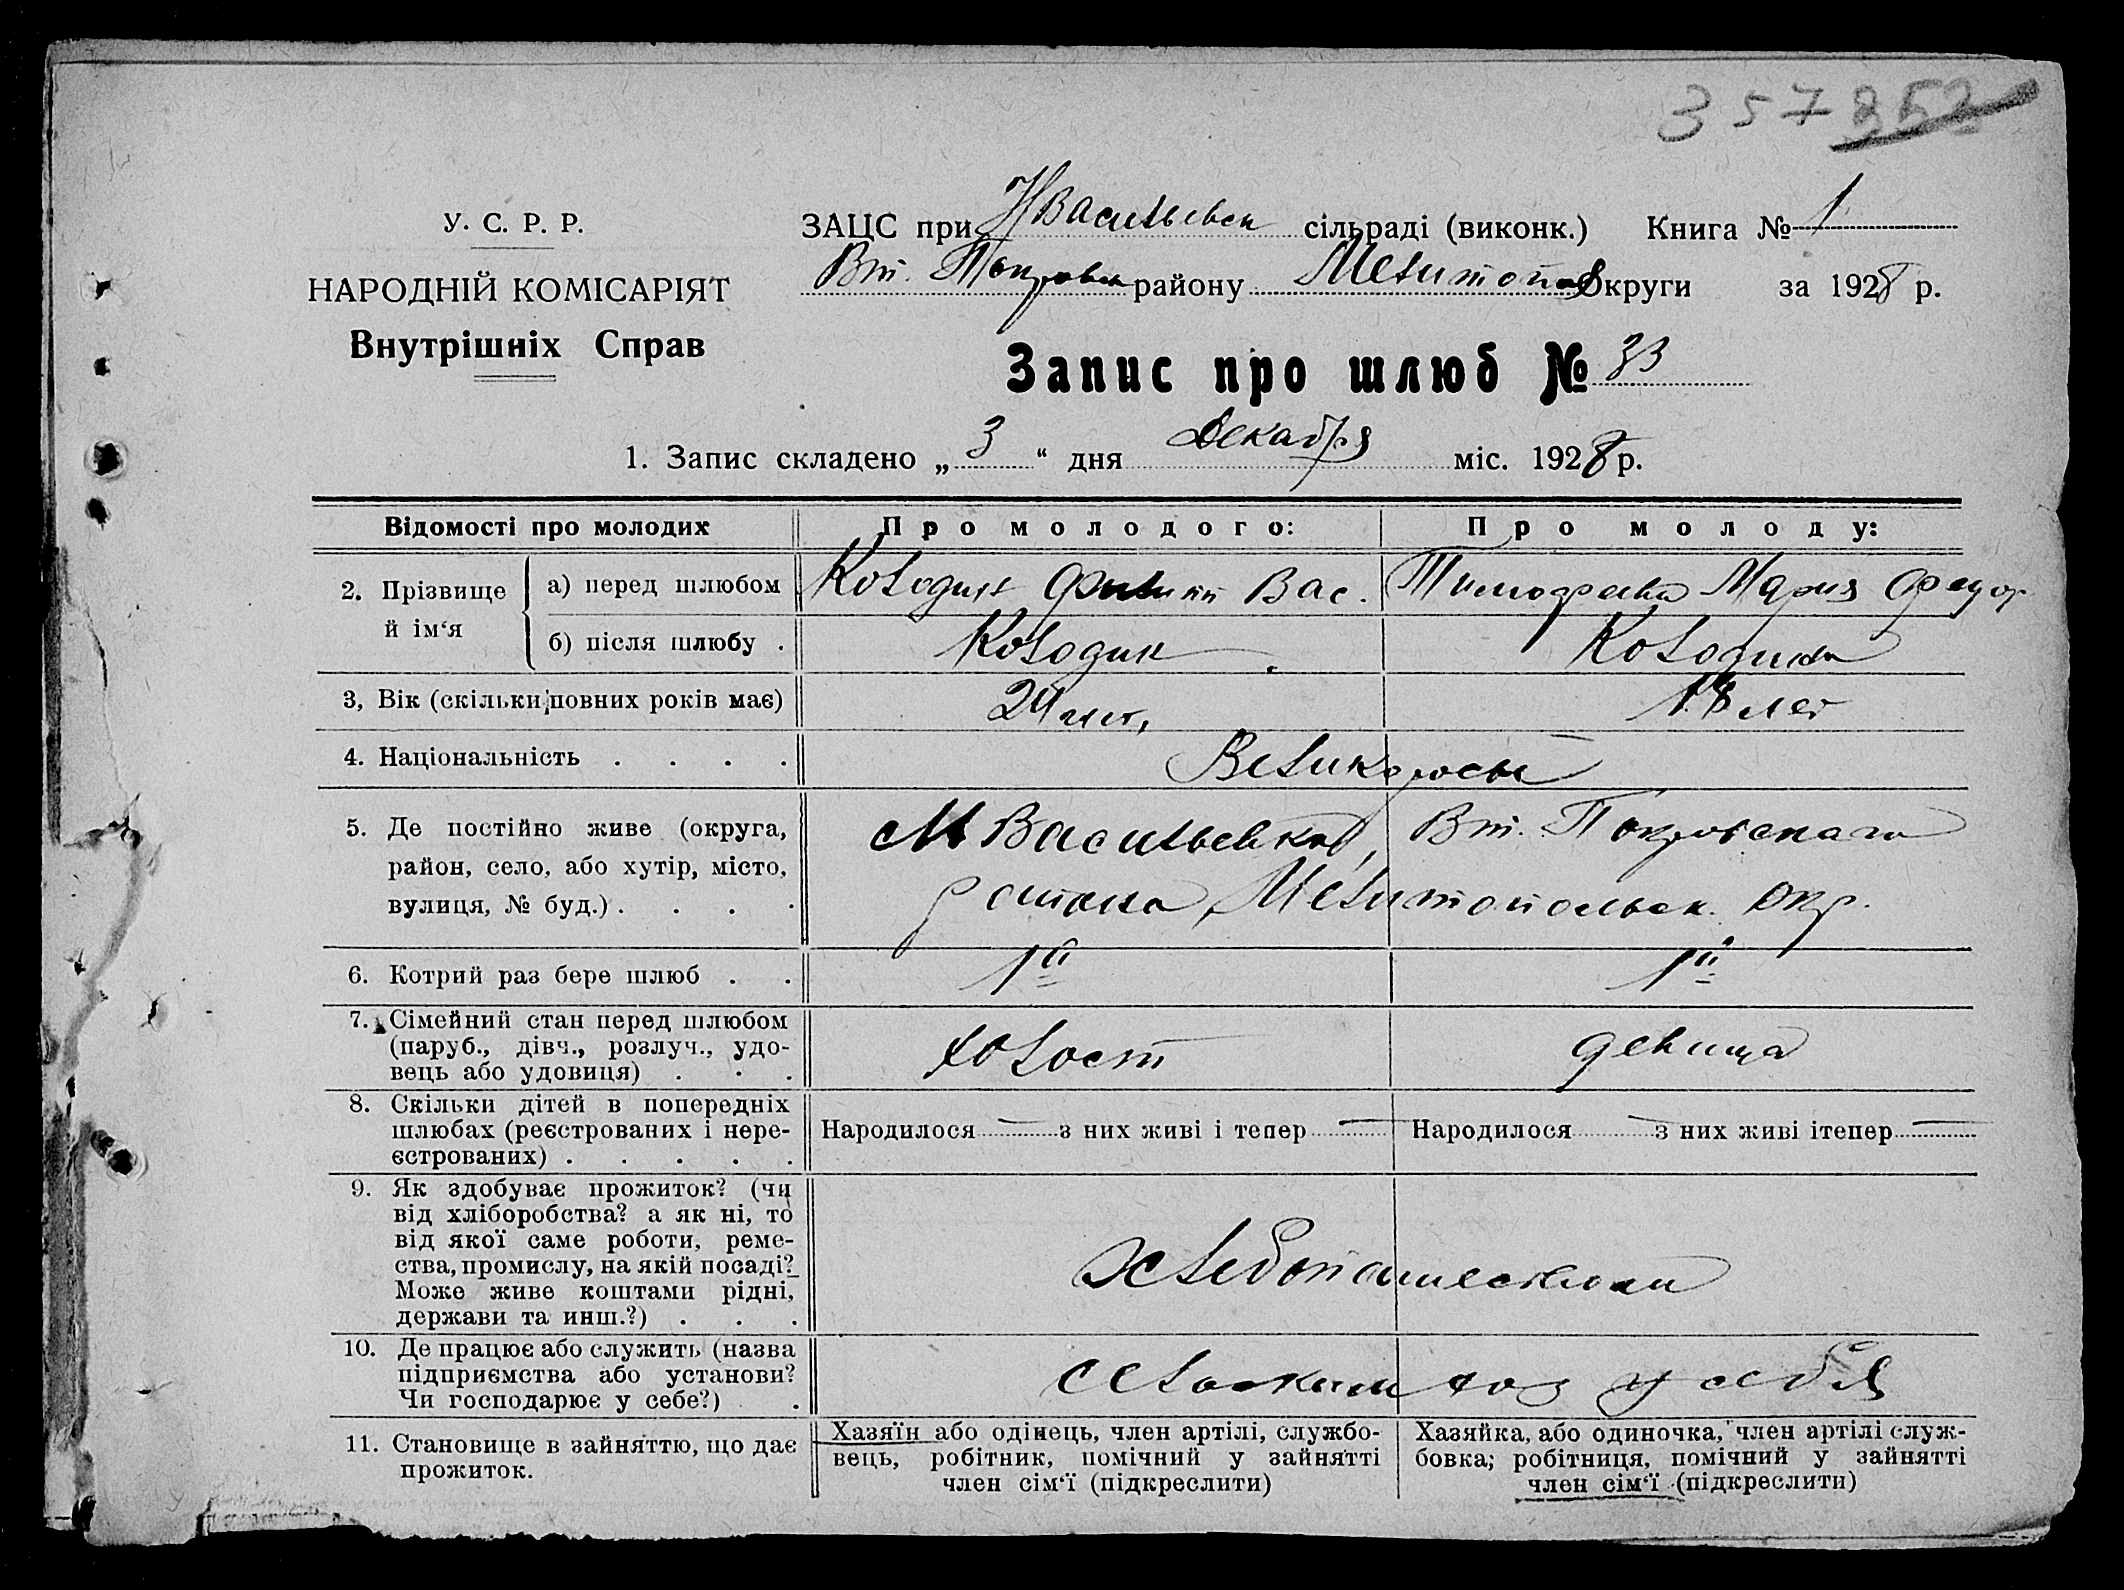 357 352
У. С. Р. Р.
НАРОДНІЙ КОМІСАРІЯТ
Внутрішніх Справ
ЗАЦС при НВасильевск сільраді (виконк.) Книга № 1
Вт. Покровск району Мелитопол Округи за 1928 р.
Запис про шлюб № 33
1. Запис складено „3“ дня Декабря міс. 1928 р.
Відомості про молодих
Про молодого:
Про молоду:
2. Прізвище й ім‘я
а) перед шлюбом
Колодин Вас.
Тимофеева Мария Федор
б) після шлюбу .
Колодин
Колодина
3, Вік (скільки повних років має)
24 лет,
18 лет
4. Національність . . . .
Великоросы
5. Де постійно живе (округа,
район, село, або хутір, місто,
вулиця, № буд.) . . . .
Васильевка, Вт. Покровскаго
района, Мелитопольск. окр.
6. Котрий раз бере шлюб . .
1й
1й
7. Сімейний стан перед шлюбом
(паруб., дівч., розлуч., удо-
вець або удовиця) . . .
холост
девица
8. Скільки дітей в попередніх
шлюбах (реєстрованих і нере-
єстрованих) . . . . .
Народилося — з них живі і тепер —
Народилося — з них живі ітепер —
9. Як здобуває прожиток? (чи
від хліборобства? а як ні, то
від якої саме роботи, реме-
ства, промислу, на якій посаді?
Може живе коштами рідні,
держави та инш.?) . . .
хлебопашеством
10. Де працює або служить (назва
підприємства або установи?
Чи господарює у себе?) .
сельским хоз у себя
11. Становище в зайняттю, що дає
прожиток.
Хазяїн або одінець, член артілі, службо-
вець, робітник, помічний у зайнятті
член сім‘ї (підкреслити)
Хазяйка, або одиночка, член артілі служ-
бовка; робітниця, помічний у зайнятті
член сім‘ї (підкреслити)